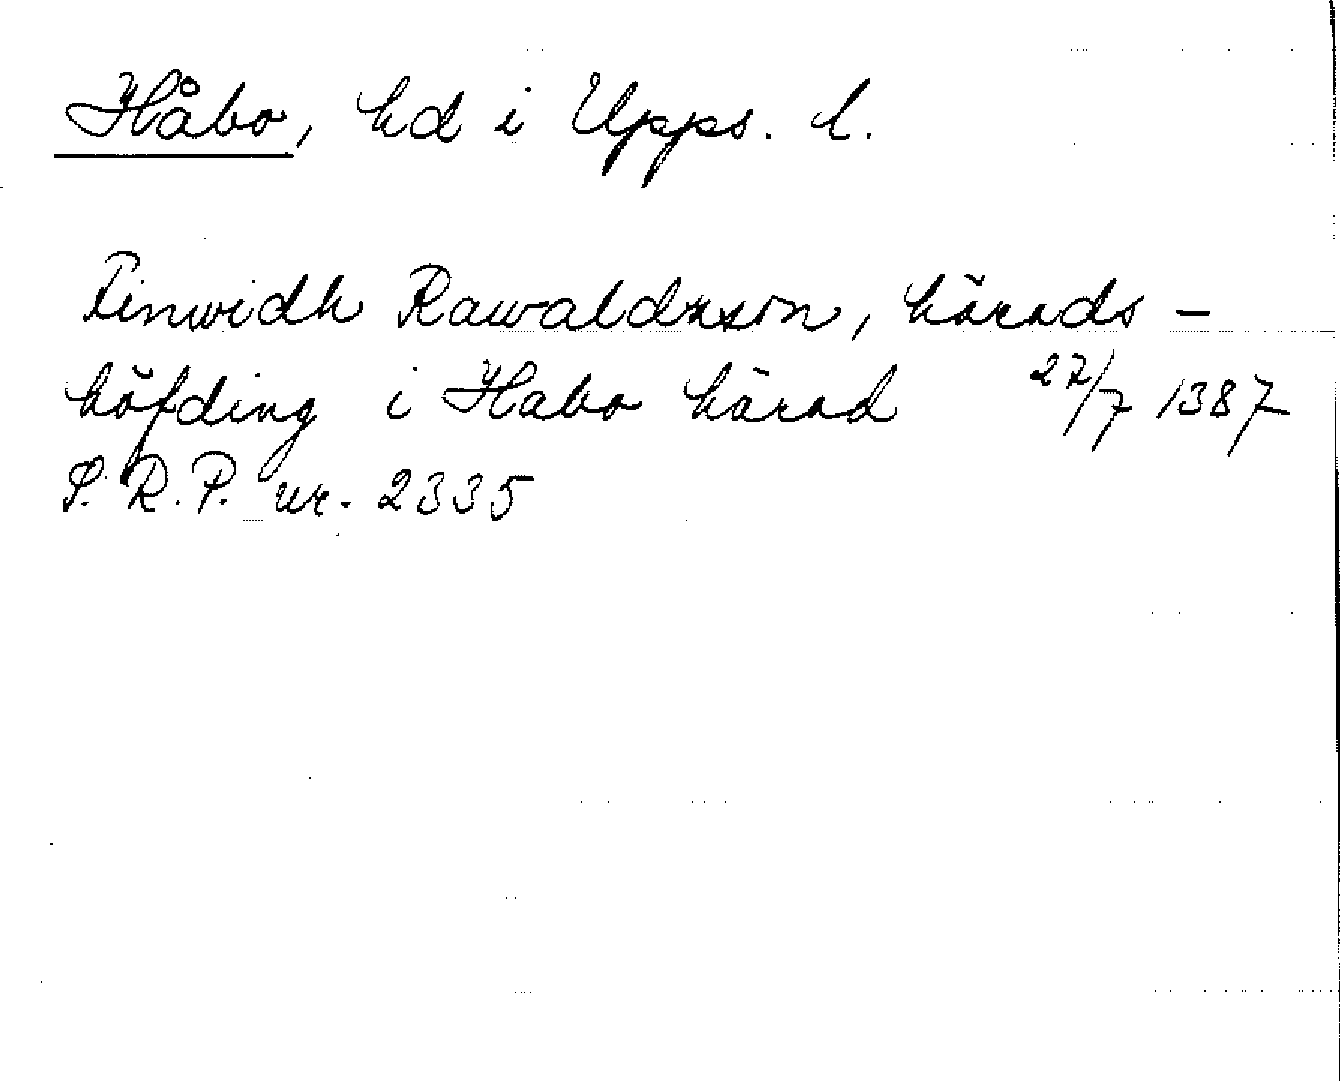 Håbo, hd i Upps. l.
Finwidh Rawaldxson, härads-
höfding i Habo härad 27/7 1387
S. R. P. nr. 2335